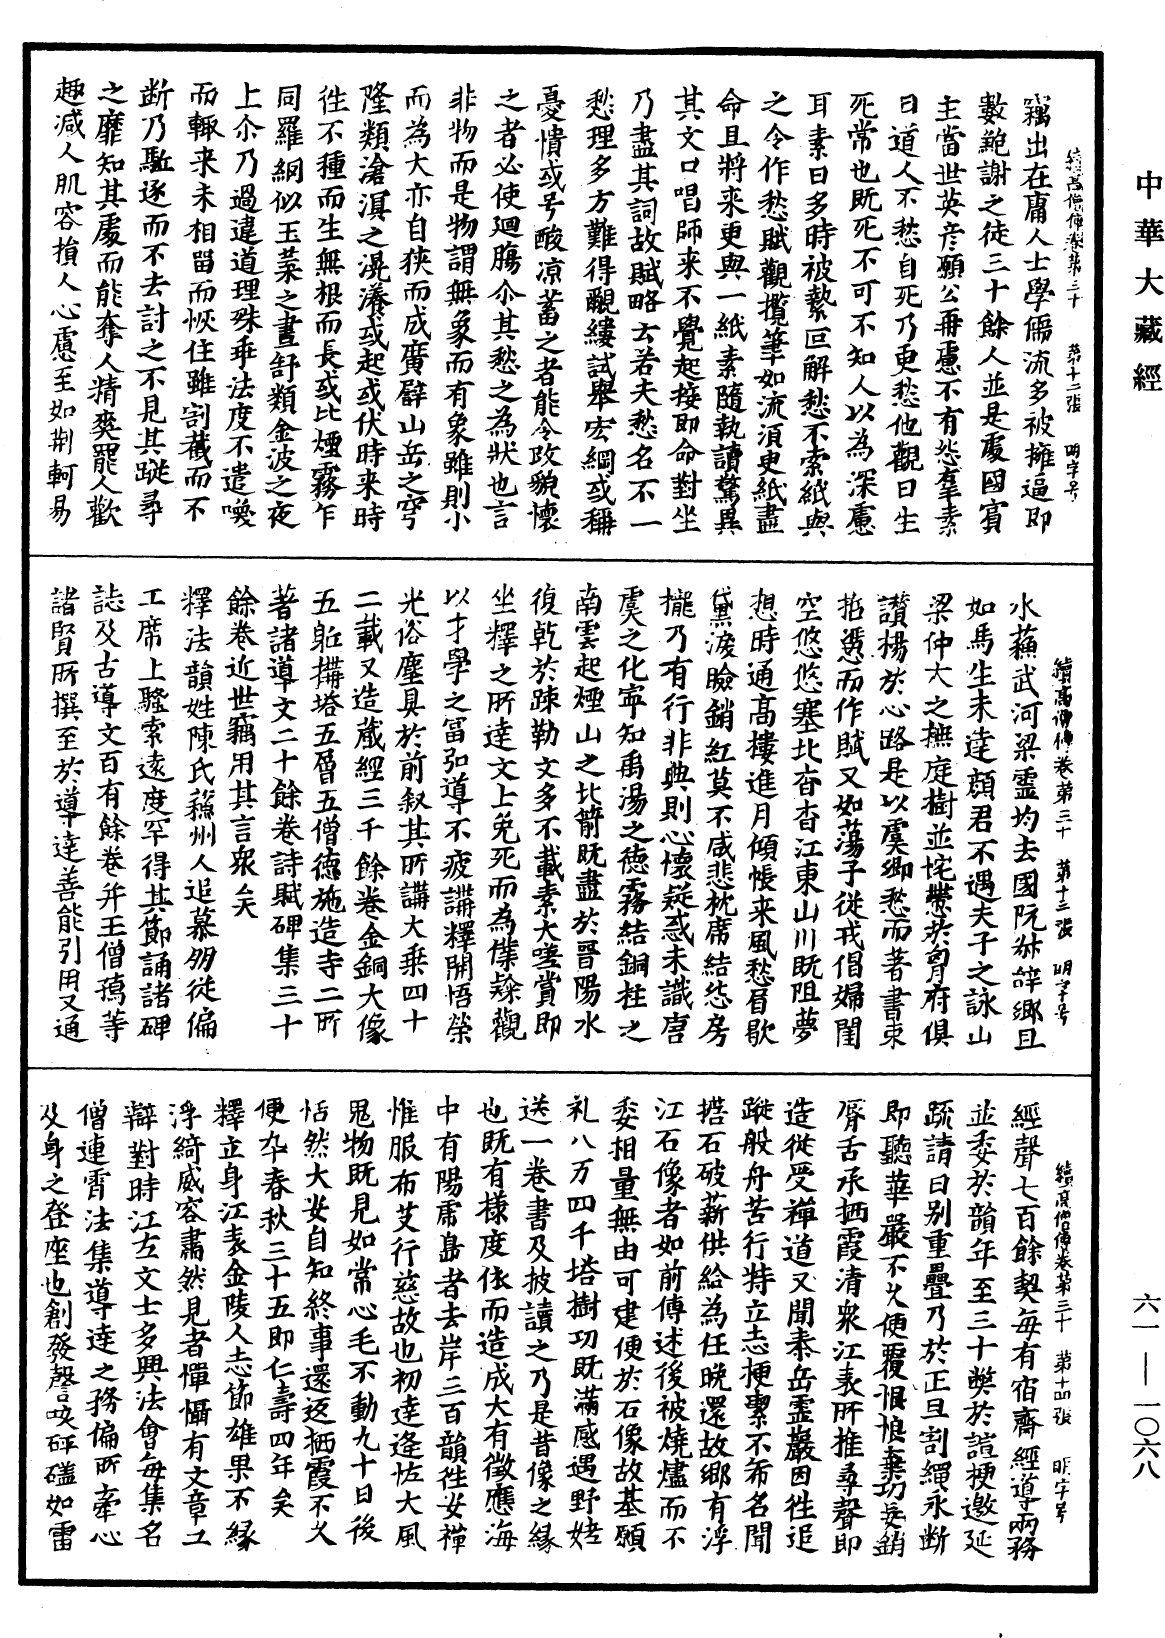 中華大藏經
續高僧傳卷第三十　第十二張　明字号
竊出在庸人士學儒流多被擁逼即
數鮑謝之徒三十餘人並是處國賓
主當世英彦願公冊慮不有怨羣素
曰道人不愁自死乃更愁他觀曰生
死常也既死不可不知人以為深慮
耳素曰多時被縶叵解愁不索紙與
之令作愁賦觀攬筆如流須臾紙盡
命且將来更與一紙素隨執讀驚異
其文口唱師来不覺起接即命對坐
乃盡其詞故賦略云若夫愁名不一
愁理多方難得覼縷試舉宏綱或稱
憂憒或号酸凉蓄之者能令改貌懷
之者必使迴腸尒其愁之為狀也言
非物而是物謂無象而有象雖則小
而為大亦自狹而成廣譬山岳之穹
隆類滄溟之滉瀁或起或伏時来時
徃不種而生無根而長或比煙霧乍
同羅網似玉葉之晝舒類金波之夜
上尒乃過違道理殊乖法度不遣喚
而輙来未相留而恢住雖割截而不
断乃駈逐而不去討之不見其蹤尋
之靡知其處而能奪人精爽罷人歡
趣減人肌容損人心慮至如荆軻易
續高僧傳卷第三十　第十三張　明字号
水蘇武河梁靈均去國阮叔辞鄉且
如馬生未逹顔君不遇夫子之詠山
梁仲大之撫庭樹並㤞慭於胷府俱
讃揚於心路是以虞卿愁而著書束
招慰而作賦又如蕩子從戎倡婦閨
空悠悠塞北杳杳江東山川既阻夢
想時通高樓進月傾帳来風愁眉歇
黛淚臉銷紅莫不咸悲枕席結怨房
櫳乃有行非典則心懷疑惑未識唐
虞之化寧知禹湯之德霧結銅柱之
南雲起煙山之北箭既盡於晋陽水
復乾於踈勒文多不載素大嗟賞即
坐釋之所逹文上免死而為僕隸觀
以才學之冨弘導不疲講釋開悟榮
光俗塵具於前叙其所講大乗四十
二載又造蔵經三千餘卷金銅大像
五軀搆塔五層五僧德施造寺二所
著諸導文二十餘卷詩賦碑集三十
餘卷近世竊用其言衆矣
釋法韻姓陳氏蘇州人追慕朋徒偏
工席上騷索遠度罕得其節誦諸碑
誌及古導文百有餘卷并王僧孺等
諸賢所撰至於導逹善能引用又通
續高僧傳卷第三十　第十四張　明字号
經聲七百餘契每有宿齋經導兩務
並委於韻年至三十弊於諠梗邀延
疏請日别重疊乃於正旦割繩永断
即聽華嚴不久便覆恨悢棄功妄銷
脣舌承栖霞清衆江表所推尋聲即
造從受禪道又聞泰岳靈巖因徃追
蹤般舟苦行特立志梗㓗不希名聞
搭石破薪供給為任晚還故鄉有浮
江石像者如前傳述後被燒燼而不
委相量無由可建便於石像故基願
礼八万四千塔樹功既滿感遇野姥
送一卷書及披讀之乃是昔像之縁
也既有様度依而造成大有徵應海
中有陽虜島者去岸三百韻徃安禪
惟服布艾行慈故也初逹逢怯大風
鬼物既見如常心毛不動九十日後
恬然大安自知終事還返栖霞不久
便卒春秋三十五即仁壽四年矣
釋立身江表金陵人志節雄果不縁
浮綺威容肅然見者憚懾有文章工
辯對時江左文士多興法會每集名
僧連霄法集導逹之務偏所牽心
及身之登座也創發謦咳砰礚如雷
六一 — 一〇六八